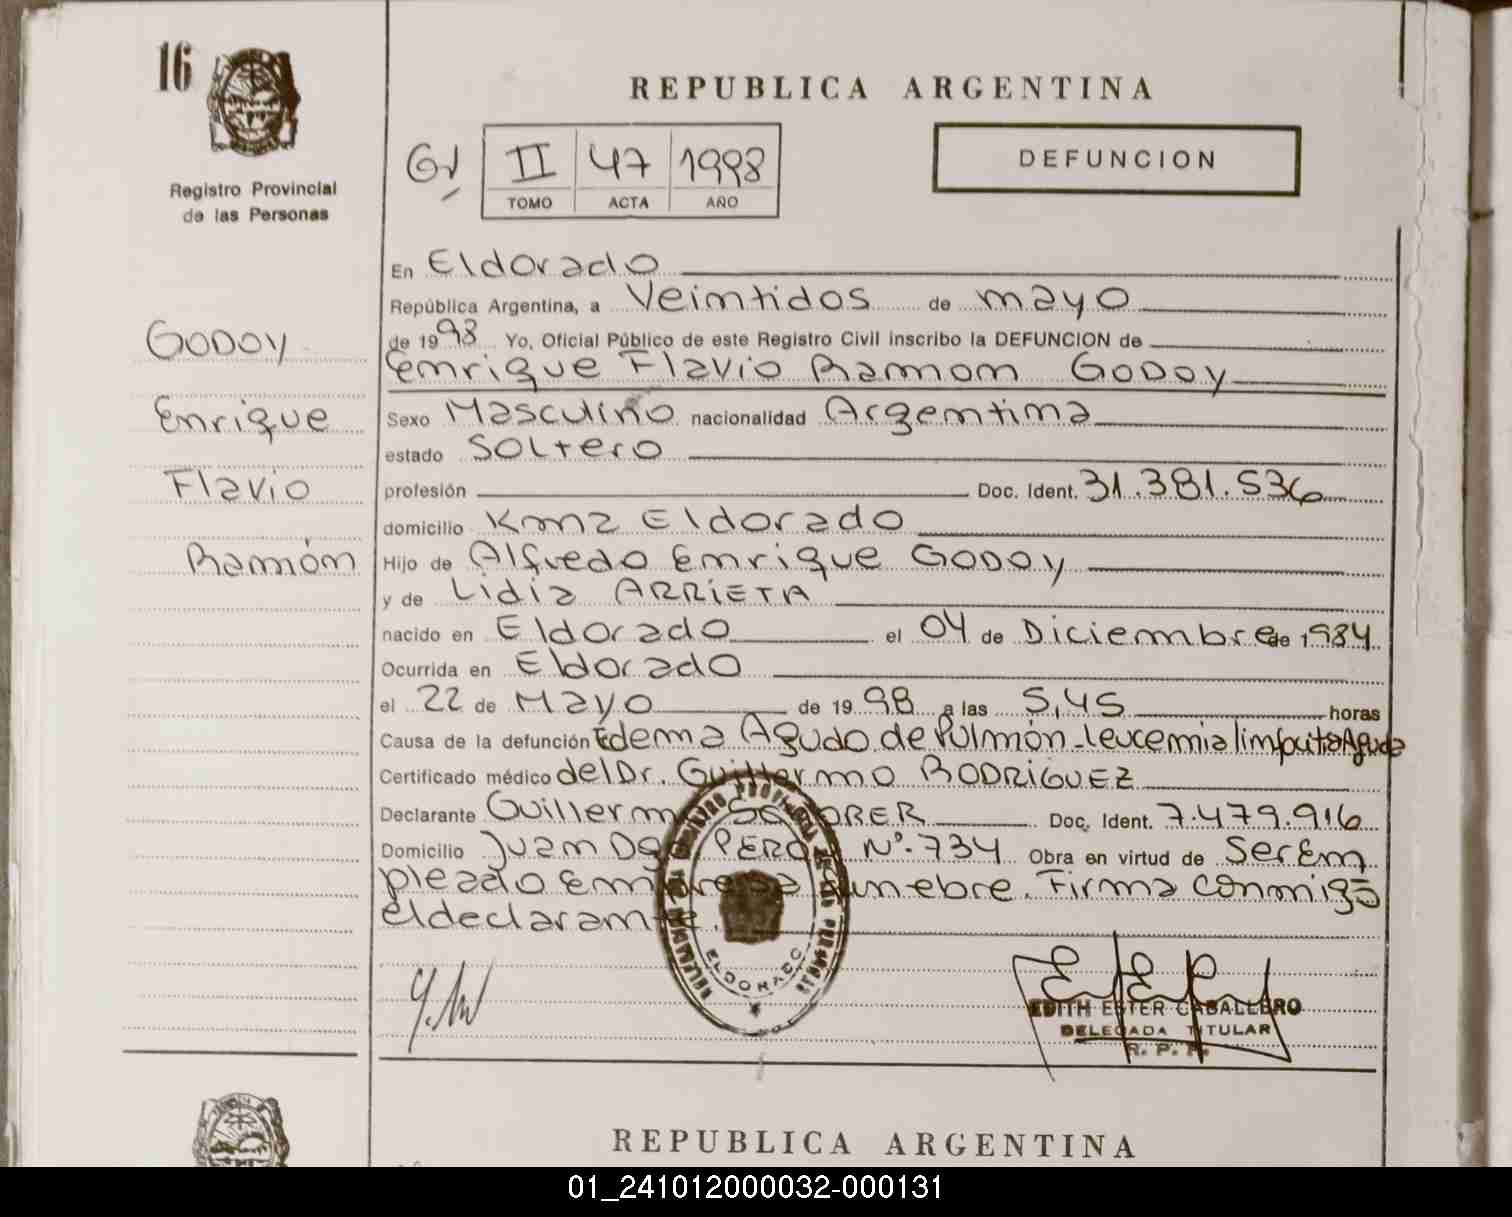 16
REPUBLICA ARGENTINA
II 47 1998
TOMO ACTA AÑO
DEFUNCION
Registro Provincial
de las Personas
GODOY
Enrique
Flavio
Ramón
En Eldorado
República Argentina, a Veintidos de mayo
de 1998 Yo, Oficial Público de este Registro Civil inscribo la DEFUNCION de
Enrique Flavio Ramon GODOY
Sexo Masculino nacionalidad Argentina
estado Soltero
profesión Doc. Ident. 31.381.536
domicilio Km2 Eldorado
Hijo de Alfredo Enrique GODOY
y de Lidia ARRIETA
nacido en Eldorado el 04 de Diciembre de 1984
Ocurrida en Eldorado
el 22 de Mayo de 1998 a las 5,45 horas
Causa de la defunción Edema Agudo de Pulmón - Leucemia Aguda
Certificado médico del Dr. Guillermo RODRIGUEZ
Declarante Guillermo Doc. Ident. 7.479.916
Domicilio Juan PERON Nº. 734 Obra en virtud de ser Em
pleado Empresa funebre. Firma conmigo
el declarante.
ELDORADO
EDITH ESTER CABALLERO
DELEGADA TITULAR
R. P. P.
REPUBLICA ARGENTINA
01_241012000032-000131